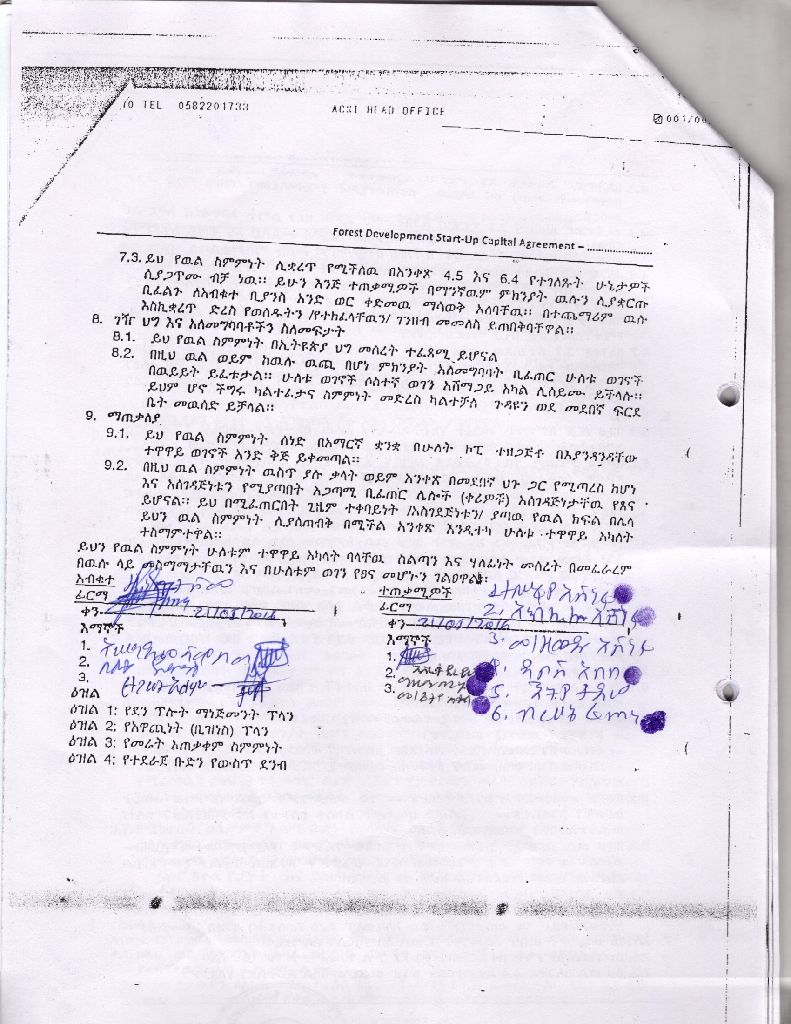 TO TEL 0582201733 ACSI HEAD OFFICE 001/00
Forest Development Start-Up Capital Agreement – ....................
7.3. ይህ የዉል ስምምነት ሊቋረጥ የሚችለዉ በአንቀጽ 4.5 እና 6.4 የተገለጹት ሁኔታዎች
ሲያጋጥሙ ብቻ ነዉ። ይሁን እንጅ ተጠቃሚዎች በማንኛዉም ምክንያት ዉሉን ሊያቋርጡ
ቢፈልጉ ለአብቁተ ቢያንስ አንድ ወር ቀድመዉ ማሳወቅ አለባቸዉ። በተጨማሪም ዉሉ
እስኪቋረጥ ድረስ የወሰዱትን /የተከፈላቸዉን/ ገንዘብ መመለስ ይጠበቅባቸዋል።
8. ገዥ ህግ እና አለመግባባቶችን ስለመፍታት
8.1. ይህ የዉል ስምምነት በኢትዮጵያ ህግ መሰረት ተፈጻሚ ይሆናል
8.2. በዚህ ዉል ወይም ከዉሉ ዉጪ በሆነ ምክንያት አለመግባባት ቢፈጠር ሁለቱ ወገኖች
በዉይይት ይፈቱታል። ሁለቱ ወገኖች ሶስተኛ ወገን አሸማጋይ አካል ሊሰይሙ ይችላሉ።
ይህም ሆኖ ችግሩ ካልተፈታና ስምምነት መድረስ ካልተቻለ ጉዳዩን ወደ መደበኛ ፍርድ
ቤት መዉሰድ ይቻላል።
9. ማጠቃለያ
9.1. ይህ የዉል ስምምነት ሰነድ በአማርኛ ቋንቋ በሁለት ኮፒ ተዘጋጅቶ በእያንዳንዳቸው
ተዋዋይ ወገኖች አንድ ቅጅ ይቀመጣል።
9.2. በዚህ ዉል ስምምነት ዉስጥ ያሉ ቃላት ወይም አንቀጽ በመደበኛ ህጉ ጋር የሚጣረስ ከሆነ
እና አስገዳጅነቱን የሚያጣበት አጋጣሚ ቢፈጠር ሌሎች (ቀሪዎች) አስገዳጅነታቸዉ የጸና
ይሆናል። ይህ በሚፈጠርበት ጊዜም ተቀባይነት /አስገዳጅነቱን/ ያጣዉ የዉል ክፍል በሌላ
ይህን ዉል ስምምነት ሊያስጠብቅ በሚችል አንቀጽ እንዲተካ ሁለቱ ተዋዋይ አካላት
ተስማምተዋል።
ይህን የዉል ስምምነት ሁለቱም ተዋዋይ አካላት ባላቸዉ ስልጣን እና ሃላፊነት መሰረት በመፈራረም
በዉሉ ላይ መስማማታቸዉን እና በሁለቱም ወገን የፀና መሆኑን ገልፀዋል፡
አብቁተ
ፊርማ
ቀን 21/05/2016
እማኞች
1.
2.
3.
ተጠቃሚዎች
ፊርማ
ቀን 21/05/2016
እማኞች
1.
2.
3.
2.
3.
4.
5.
6.
ዕዝል
ዕዝል 1: የደን ፕሎት ማነጅመንት ፕላን
ዕዝል 2: የአዋጪነት (ቢዝነስ) ፕላን
ዕዝል 3: የመሬት አጠቃቀም ስምምነት
ዕዝል 4: የተደራጀ ቡድን የውስጥ ደንብ